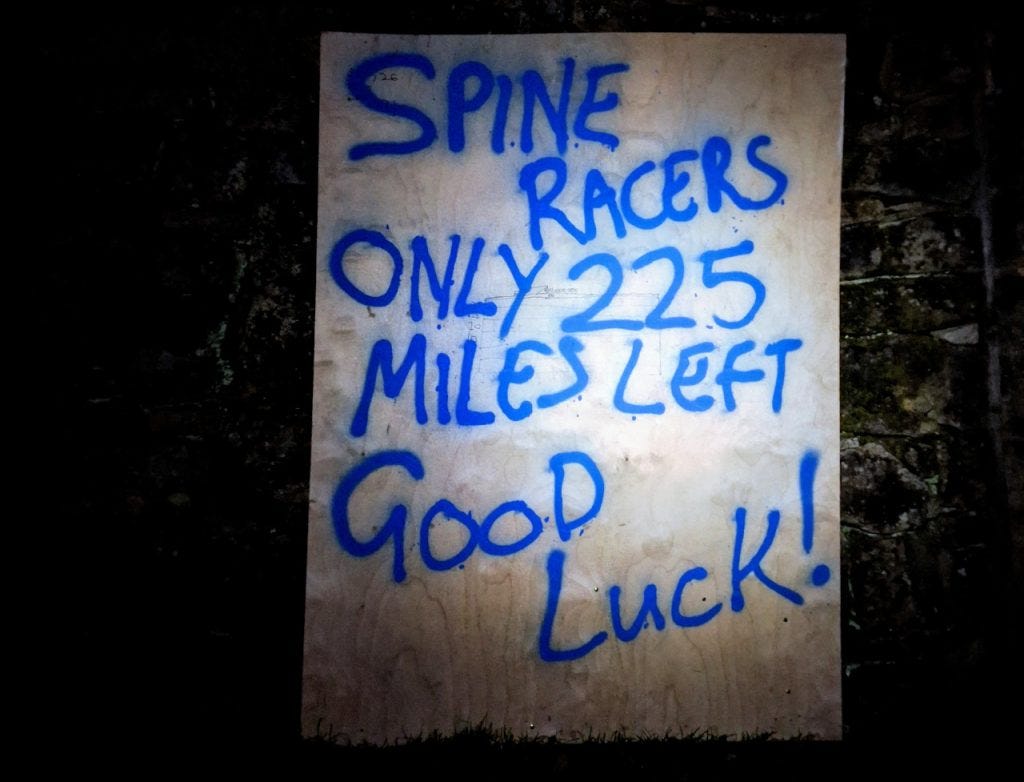 SPINE
RACERS
ONLY 225
MILES LEFT
GOOD
LUCK!